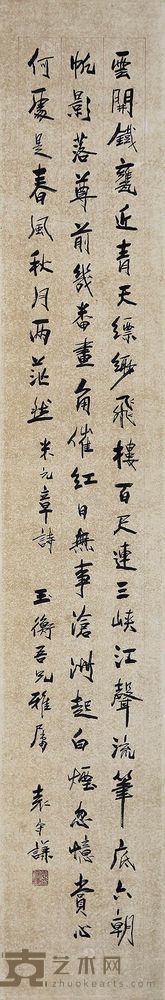 雲開鐵甕近青天縹緲飛樓百尺連三峽江聲流筆底六朝
帆影落尊前幾番畫角催紅日無事滄洲起白煙忽憶賞心
何處是春風秋月兩茫然 米元章詩 玉衡吾兄雅屬 袁守謙
艺术网